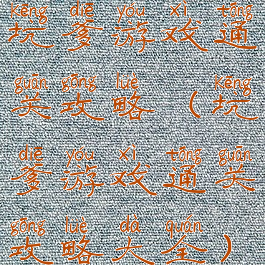 kēng diē yóu xì tōng
坑爹游戏通
guān gōng lüè kēng
关攻略（坑
diē yóu xì tōng guān
爹游戏通关
gōng lüè dà quán
攻略大全）